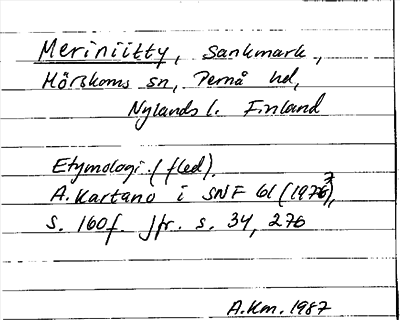 Meriniitty, Sankmark,
Mörskoms sn, Pernå hd,
Nylands l. Finland
Etymologi. (fled).
A. Kartano i SNF 61 (1973),
s. 160f. Jfr. s. 34, 276
A.Km. 1987